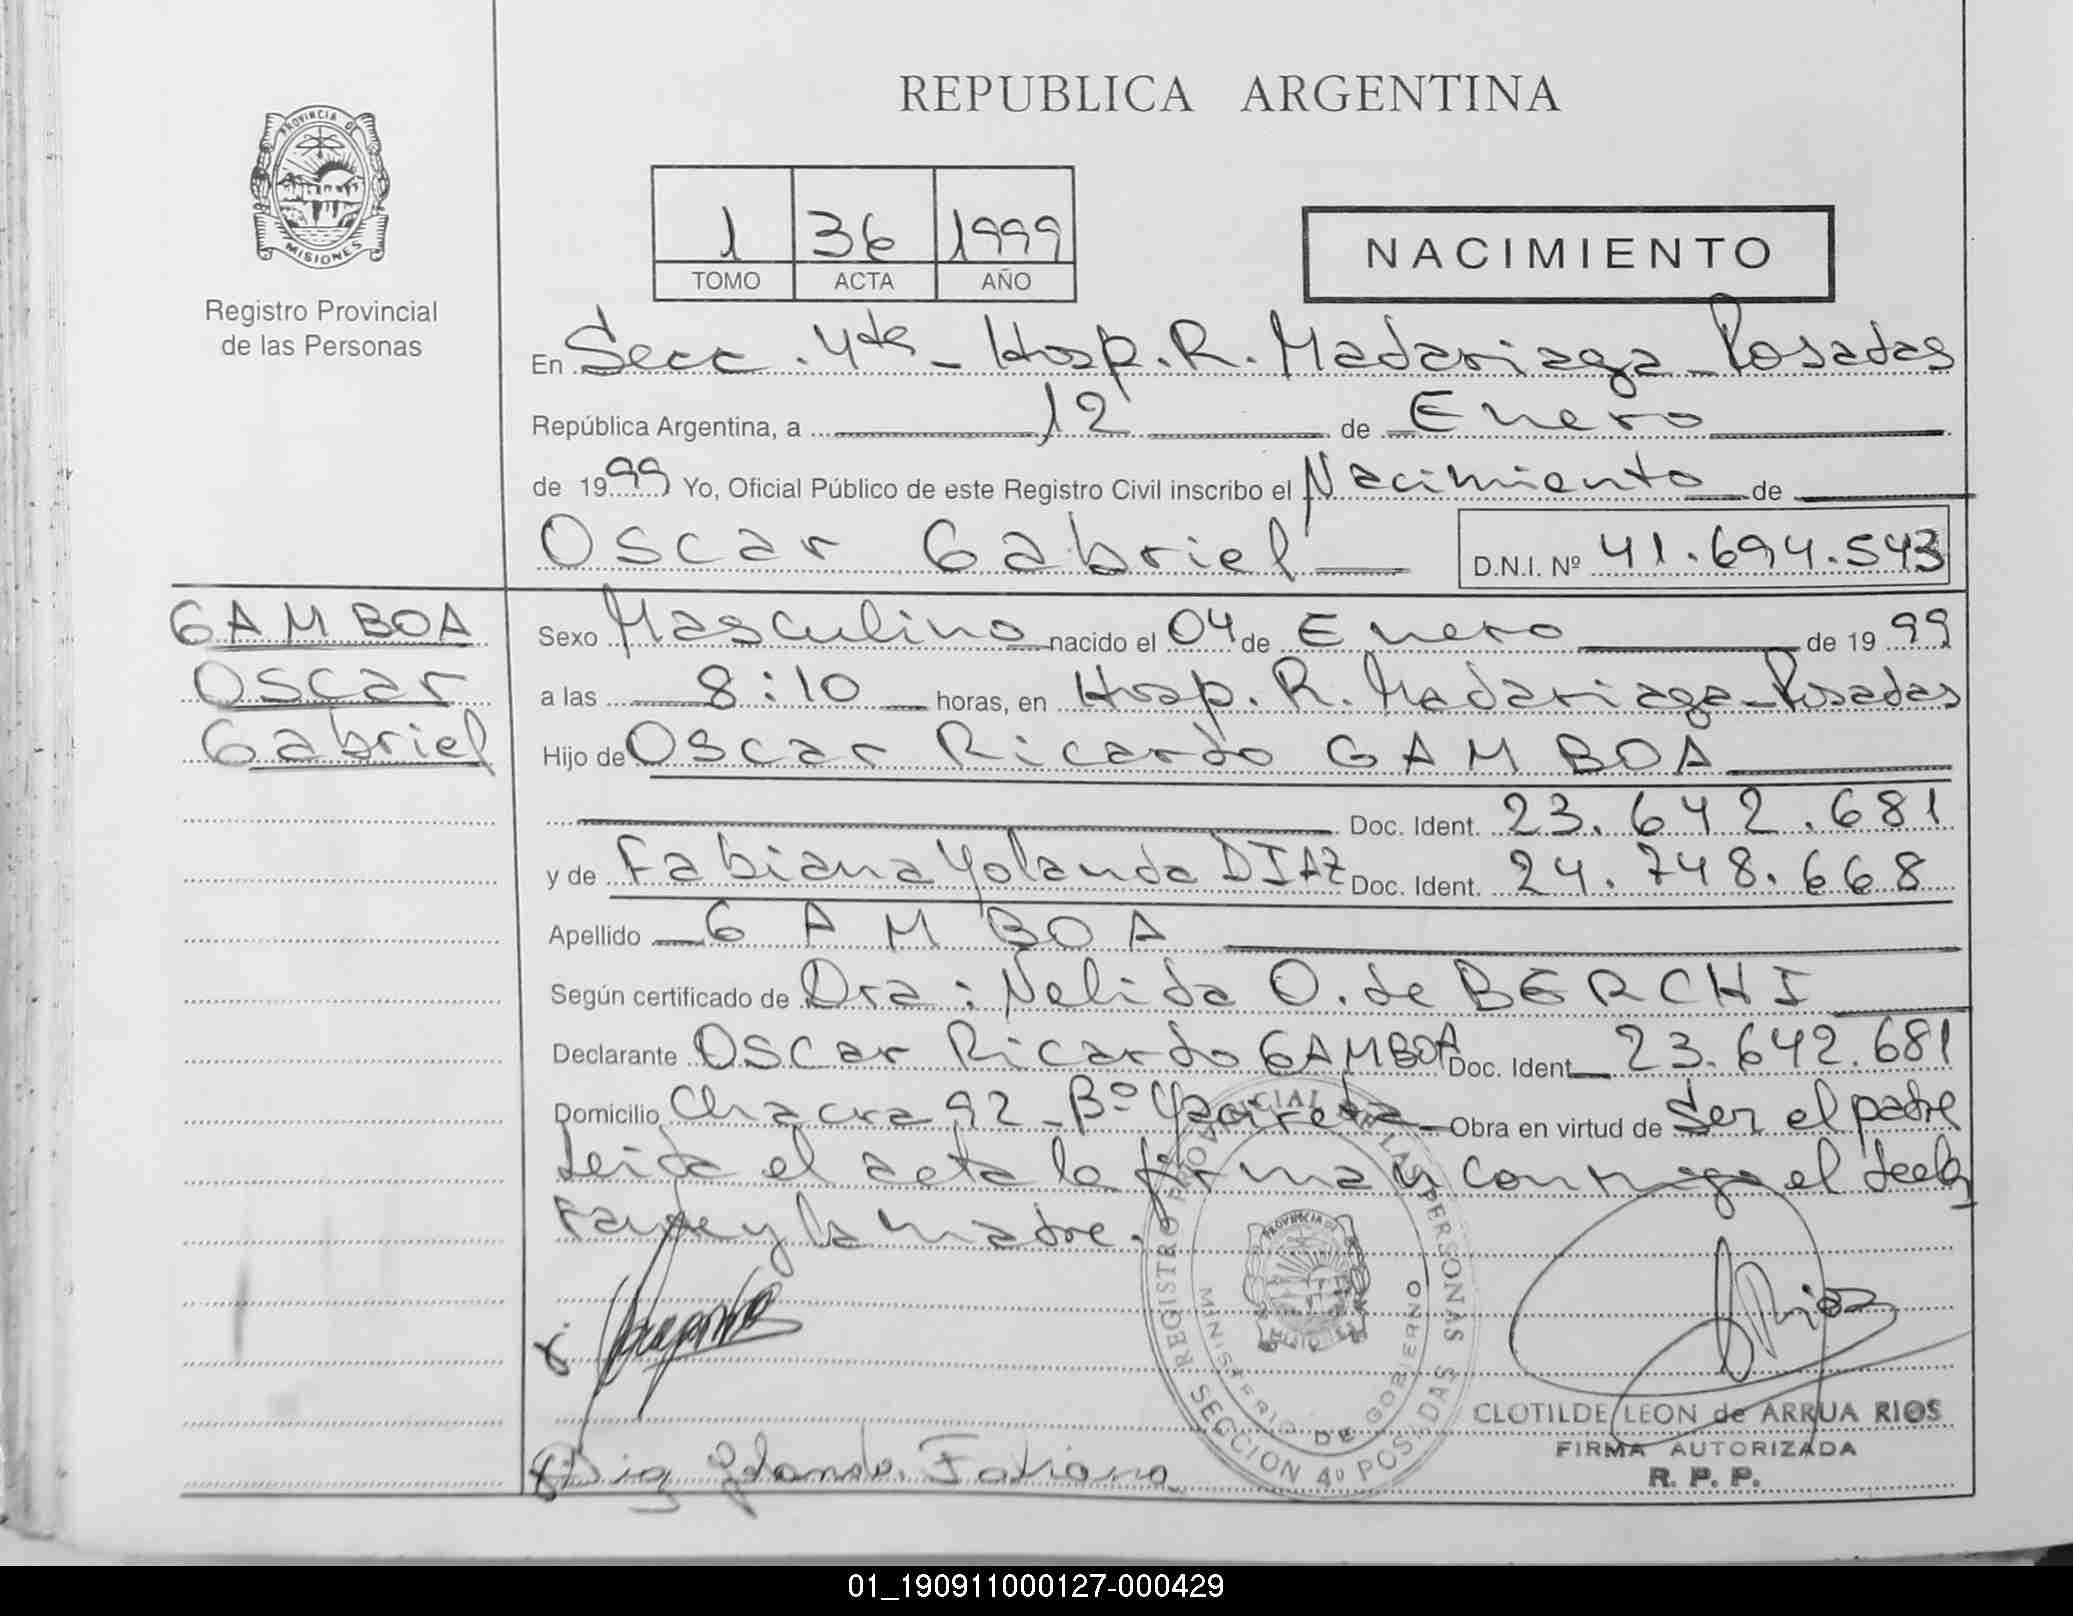 REPUBLICA ARGENTINA
PROVINCIA DE
MISIONES
Registro Provincial
de las Personas
1 36 1999
TOMO ACTA AÑO
NACIMIENTO
En Secc. 4ta - Hosp. R. Madariaga - Posadas
República Argentina, a 12 de Enero
de 1999 Yo, Oficial Público de este Registro Civil inscribo el Nacimiento de
Oscar Gabriel D.N.I. Nº 41.694.543
GAMBOA
Oscar
Gabriel
Sexo Masculino nacido el 04 de Enero de 1999
a las 8:10 horas, en Hosp. R. Madariaga - Posadas
Hijo de Oscar Ricardo GAMBOA
Doc. Ident. 23.642.681
y de Fabiana Yolanda DIAZ Doc. Ident. 24.748.668
Apellido GAMBOA
Según certificado de Dra: Nelida O. de BERCHI
Declarante Oscar Ricardo GAMBOA Doc. Ident. 23.642.681
Domicilio Chacra 92 - Bº Yacireta Obra en virtud de Ser el padre
Leida el acta la firman conmigo el decla
rante y la madre.
REGISTRO PROVINCIAL DE LAS PERSONAS
MINISTERIO DE GOBIERNO
SECCION 4º POSADAS
CLOTILDE LEON de ARRUA RIOS
FIRMA AUTORIZADA
R. P. P.
Diaz Yolanda Fabiana
01_190911000127-000429